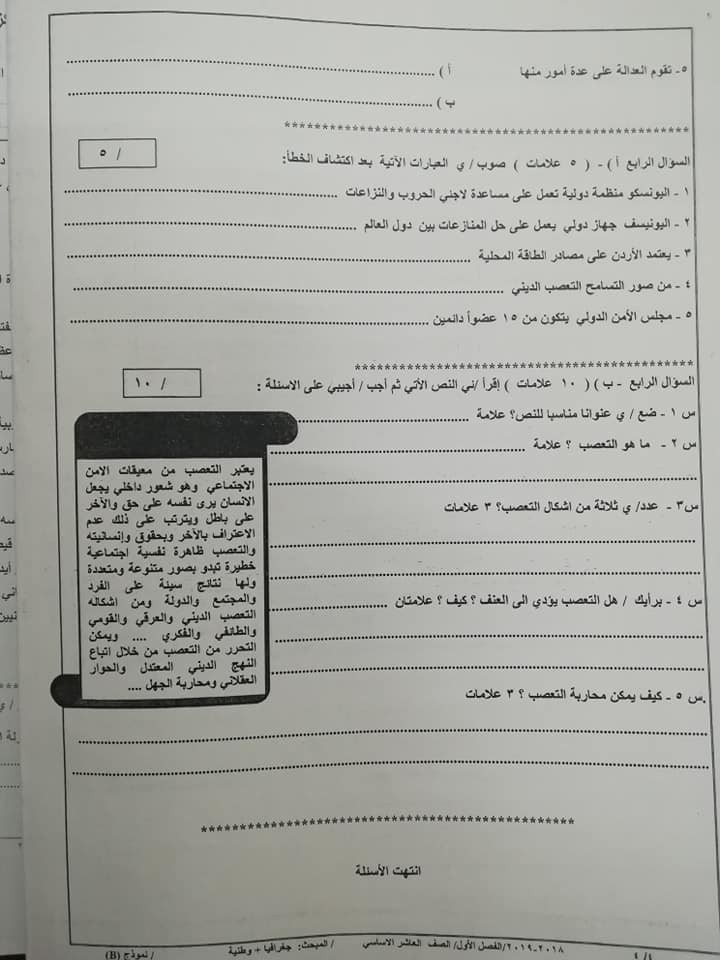 ٥- تقوم العدالة على عدة أمور منها أ) ............................
ب) ............................
****************************************
/ ٥
السؤال الرابع أ) - ( ٥ علامات ) صوب / ي العبارات الآتية بعد اكتشاف الخطأ:
١ - اليونسكو منظمة دولية تعمل على مساعدة لاجئي الحروب والنزاعات ............................
٢ - اليونيسف جهاز دولي يعمل على حل المنازعات بين دول العالم ............................
٣ - يعتمد الأردن على مصادر الطاقة المحلية ............................
٤ - من صور التسامح التعصب الديني ............................
٥ - مجلس الأمن الدولي يتكون من ١٥ عضواً دائمين ............................
****************************************
/ ١٠
السؤال الرابع - ب ) ( ١٠ علامات ) إقرأ /ئي النص الأتي ثم أجب / أجيبي على الاسئلة :
س ١ - ضع / ي عنوانا مناسبا للنص؟ علامة ............................
س ٢ - ما هو التعصب ؟ علامة ............................
س٣ - عدد/ ي ثلاثة من اشكال التعصب؟ ٣ علامات
س ٤ - برأيك / هل التعصب يؤدي الى العنف ؟ كيف ؟ علامتان ............................
س ٥ - كيف يمكن محاربة التعصب ؟ ٣ علامات
يعتبر التعصب من معيقات الامن
الاجتماعي وهو شعور داخلي يجعل
الانسان يرى نفسه على حق والآخر
على باطل ويترتب على ذلك عدم
الاعتراف بالآخر وبحقوق وإنسانيته
والتعصب ظاهرة نفسية اجتماعية
خطيرة تبدو بصور متنوعة ومتعددة
ولها نتائج سيئة على الفرد
والمجتمع والدولة ومن اشكاله
التعصب الديني والعرقي والقومي
والطائفي والفكري .... ويمكن
التحرر من التعصب من خلال اتباع
النهج الديني المعتدل والحوار
العقلاني ومحاربة الجهل ....
****************************************
انتهت الأسئلة
٤/٤ ٢٠١٨-٢٠١٩/الفصل الأول/ الصف العاشر الاساسي / المبحث: جغرافيا + وطنية / نموذج (B)